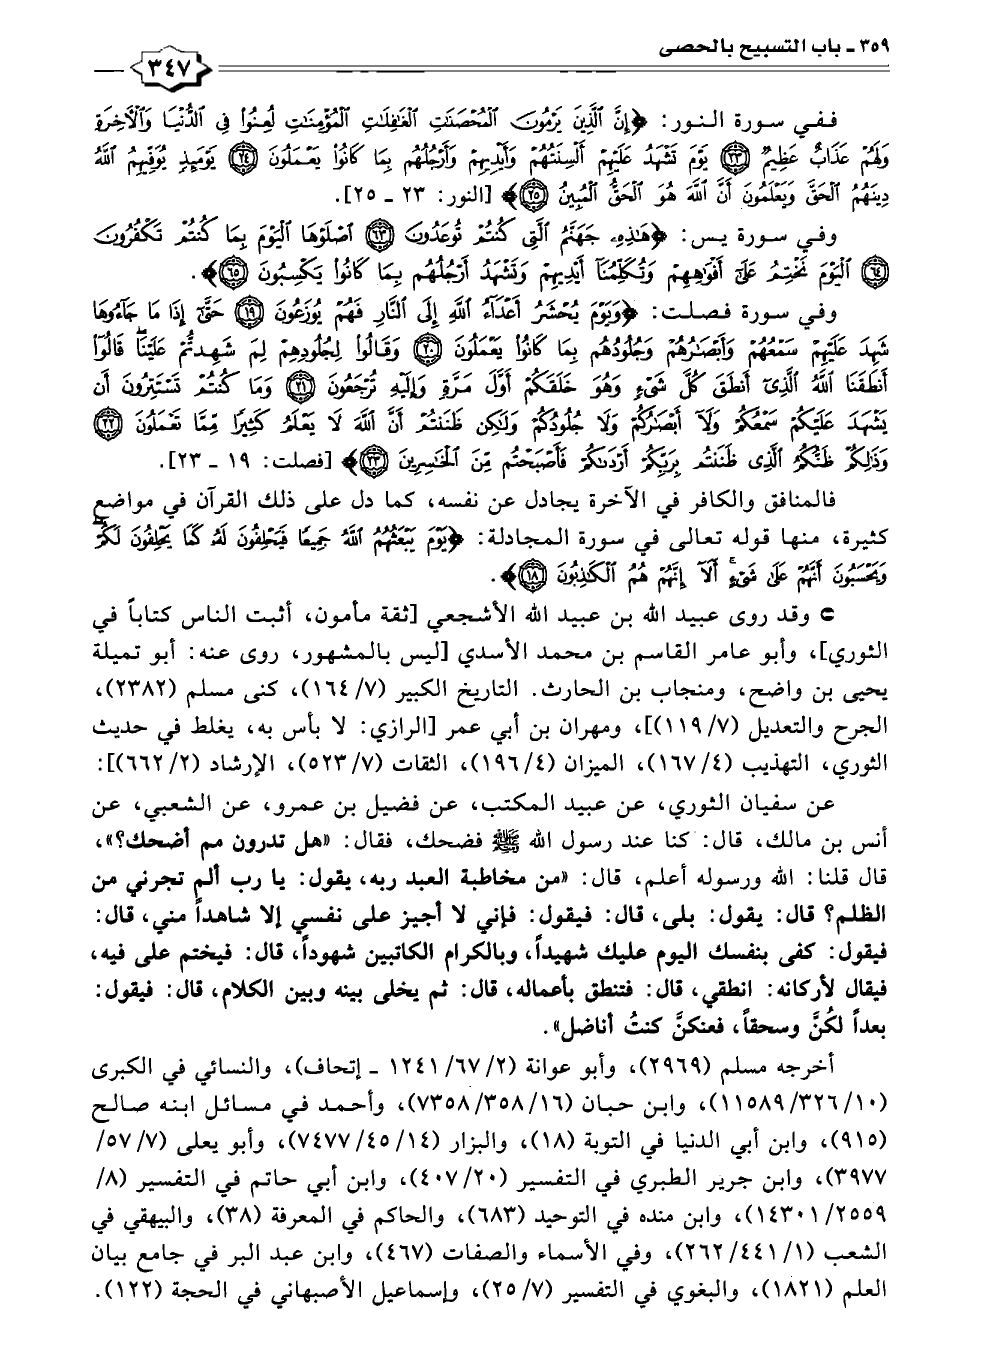 ٣٥٩ - باب التسبيح بالحصى
٣٤٧
ففي سورة النور: ﴿إِنَّ الَّذِينَ يَرْمُونَ الْمُحْصَنَاتِ الْغَافِلَاتِ الْمُؤْمِنَاتِ لُعِنُوا فِي الدُّنْيَا وَالْآخِرَةِ
وَلَهُمْ عَذَابٌ عَظِيمٌ ﴿٢٣﴾ يَوْمَ تَشْهَدُ عَلَيْهِمْ أَلْسِنَتُهُمْ وَأَيْدِيهِمْ وَأَرْجُلُهُم بِمَا كَانُوا يَعْمَلُونَ ﴿٢٤﴾ يَوْمَئِذٍ يُوَفِّيهِمُ اللَّهُ
دِينَهُمُ الْحَقَّ وَيَعْلَمُونَ أَنَّ اللَّهَ هُوَ الْحَقُّ الْمُبِينُ ﴿٢٥﴾﴾ [النور: ٢٣ - ٢٥].
وفي سورة يس: ﴿هَٰذِهِ جَهَنَّمُ الَّتِي كُنتُمْ تُوعَدُونَ ﴿٦٣﴾ اصْلَوْهَا الْيَوْمَ بِمَا كُنتُمْ تَكْفُرُونَ
﴿٦٤﴾ الْيَوْمَ نَخْتِمُ عَلَىٰ أَفْوَاهِهِمْ وَتُكَلِّمُنَا أَيْدِيهِمْ وَتَشْهَدُ أَرْجُلُهُم بِمَا كَانُوا يَكْسِبُونَ ﴿٦٥﴾﴾.
وفي سورة فصلت: ﴿وَيَوْمَ يُحْشَرُ أَعْدَاءُ اللَّهِ إِلَى النَّارِ فَهُمْ يُوزَعُونَ ﴿١٩﴾ حَتَّىٰ إِذَا مَا جَاءُوهَا
شَهِدَ عَلَيْهِمْ سَمْعُهُمْ وَأَبْصَارُهُمْ وَجُلُودُهُم بِمَا كَانُوا يَعْمَلُونَ ﴿٢٠﴾ وَقَالُوا لِجُلُودِهِمْ لِمَ شَهِدتُّمْ عَلَيْنَا ۖ قَالُوا
أَنطَقَنَا اللَّهُ الَّذِي أَنطَقَ كُلَّ شَيْءٍ وَهُوَ خَلَقَكُمْ أَوَّلَ مَرَّةٍ وَإِلَيْهِ تُرْجَعُونَ ﴿٢١﴾ وَمَا كُنتُمْ تَسْتَتِرُونَ أَن
يَشْهَدَ عَلَيْكُمْ سَمْعُكُمْ وَلَا أَبْصَارُكُمْ وَلَا جُلُودُكُمْ وَلَٰكِن ظَنَنتُمْ أَنَّ اللَّهَ لَا يَعْلَمُ كَثِيرًا مِّمَّا تَعْمَلُونَ ﴿٢٢﴾
وَذَٰلِكُمْ ظَنُّكُمُ الَّذِي ظَنَنتُم بِرَبِّكُمْ أَرْدَاكُمْ فَأَصْبَحْتُم مِّنَ الْخَاسِرِينَ ﴿٢٣﴾﴾ [فصلت: ١٩ - ٢٣].
فالمنافق والكافر في الآخرة يجادل عن نفسه، كما دل على ذلك القرآن في مواضع
كثيرة، منها قوله تعالى في سورة المجادلة: ﴿يَوْمَ يَبْعَثُهُمُ اللَّهُ جَمِيعًا فَيَحْلِفُونَ لَهُ كَمَا يَحْلِفُونَ لَكُمْ ۖ
وَيَحْسَبُونَ أَنَّهُمْ عَلَىٰ شَيْءٍ ۚ أَلَا إِنَّهُمْ هُمُ الْكَاذِبُونَ ﴿١٨﴾﴾.
⊃ وقد روى عبيد الله بن عبيد الله الأشجعي [ثقة مأمون، أثبت الناس كتاباً في
الثوري]، وأبو عامر القاسم بن محمد الأسدي [ليس بالمشهور، روى عنه: أبو تميلة
يحيى بن واضح، ومنجاب بن الحارث. التاريخ الكبير (٧/ ١٦٤)، كنى مسلم (٢٣٨٢)،
الجرح والتعديل (٧/ ١١٩)]، ومهران بن أبي عمر [الرازي: لا بأس به، يغلط في حديث
الثوري، التهذيب (٤/ ١٦٧)، الميزان (٤/ ١٩٦)، الثقات (٧/ ٥٢٣)، الإرشاد (٢/ ٦٦٢)]:
عن سفيان الثوري، عن عبيد المكتب، عن فضيل بن عمرو، عن الشعبي، عن
أنس بن مالك، قال: كنا عند رسول الله ﷺ فضحك، فقال: «هل تدرون مم أضحك؟»،
قال قلنا: الله ورسوله أعلم، قال: «من مخاطبة العبد ربه، يقول: يا رب ألم تجرني من
الظلم؟ قال: يقول: بلى، قال: فيقول: فإني لا أجيز على نفسي إلا شاهداً مني، قال:
فيقول: كفى بنفسك اليوم عليك شهيداً، وبالكرام الكاتبين شهوداً، قال: فيختم على فيه،
فيقال لأركانه: انطقي، قال: فتنطق بأعماله، قال: ثم يخلى بينه وبين الكلام، قال: فيقول:
بعداً لكُنَّ وسحقاً، فعنكنَّ كنتُ أناضل».
أخرجه مسلم (٢٩٦٩)، وأبو عوانة (٢/ ٦٧/ ١٢٤١ - إتحاف)، والنسائي في الكبرى
(١٠/ ٣٢٦/ ١١٥٨٩)، وابن حبان (١٦/ ٣٥٨/ ٧٣٥٨)، وأحمد في مسائل ابنه صالح
(٩١٥)، وابن أبي الدنيا في التوبة (١٨)، والبزار (١٤/ ٤٥/ ٧٤٧٧)، وأبو يعلى (٧/ ٥٧/
٣٩٧٧)، وابن جرير الطبري في التفسير (٢٠/ ٤٠٧)، وابن أبي حاتم في التفسير (٨/
٢٥٥٩/ ١٤٣٠١)، وابن منده في التوحيد (٦٨٣)، والحاكم في المعرفة (٣٨)، والبيهقي في
الشعب (١/ ٤٤١/ ٢٦٢)، وفي الأسماء والصفات (٤٦٧)، وابن عبد البر في جامع بيان
العلم (١٨٢١)، والبغوي في التفسير (٧/ ٢٥)، وإسماعيل الأصبهاني في الحجة (١٢٢).